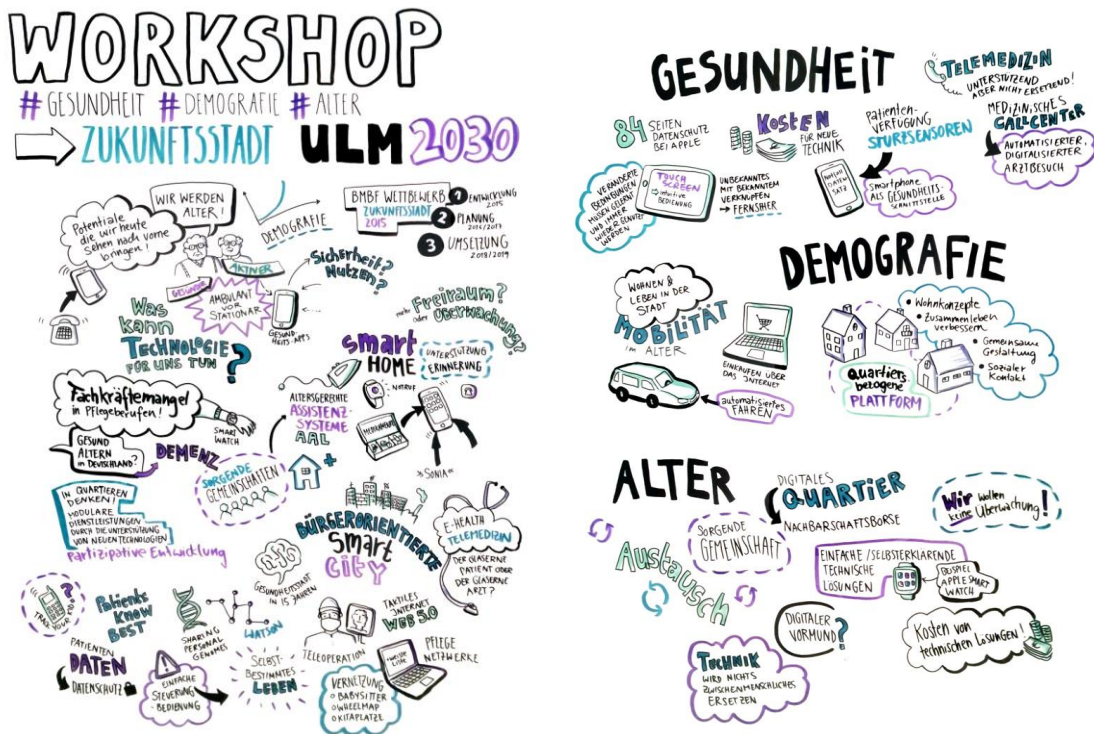 WORKSHOP
# GESUNDHEIT # DEMOGRAFIE # ALTER
ZUKUNFTSSTADT ULM 2030
Potentiale
die wir heute
sehen nach vorne
bringen!
WIR WERDEN
ÄLTER!
DEMOGRAFIE
BMBF WETTBEWERB
ZUKUNFTSSTADT
2015
1 ENTWICKLUNG
2015
2 PLANUNG
2016/2017
3 UMSETZUNG
2018/2019
AKTIVER
GESÜNDER
AMBULANT
VOR
STATIONÄR
GESUND-
HEITS-APPS
Sicherheit?
Nutzen?
mehr Freiraum?
oder Überwachung?
Was
kann
TECHNOLOGIE
FÜR UNS TUN?
smart
HOME
UNTERSTÜTZUNG
ERINNERUNG
Fachkräftemangel
in Pflegeberufen!
SMART
WATCH
ALTERSGERECHTE
ASSISTENZ-
SYSTEME
AAL
NOTRUF
MEDIKAMENTE
»SONIA«
GESUND
ALTERN
in DEUTSCHLAND?
DEMENZ
SORGENDE
GEMEINSCHAFTEN
IN QUARTIEREN
DENKEN!
MODULARE
DIENSTLEISTUNGEN
DURCH DIE UNTERSTÜTZUNG
VON NEUEN TECHNOLOGIEN
Partizipative Entwicklung
BÜRGERORIENTIERTE
Smart
City
E-HEALTH
TELEMEDIZIN
DER GLÄSERNE
PATIENT ODER
DER GLÄSERNE
ARZT?
GESUNDHEITSSTADT
IN 15 JAHREN
TRACK YOUR
Patients
KNOW
BEST
SHARING
PERSONAL
GENOMES
WATSON
TELEOPERATION
TAKTILES
INTERNET
WEB 5.0
PATIENTEN
DATEN
DATENSCHUTZ
EINFACHE
STEUERUNG
-BEDIENUNG
SELBST-
BESTIMMTES
LEBEN
VERNETZUNG
BABYSITTER
WHEELMAP
KITAPLÄTZE
PFLEGE
NETZWERKE
GESUNDHEIT
TELEMEDIZIN
UNTERSTÜTZEND
ABER NICHT ERSETZEND!
84 SEITEN
DATENSCHUTZ
BEI APPLE
KOSTEN
FÜR NEUE
TECHNIK
PATIENTEN-
VERFÜGUNG
STURZSENSOREN
MEDIZINISCHES
CALLCENTER
AUTOMATISIERTER,
DIGITALISIERTER
ARZTBESUCH
VERÄNDERTE
BEDINGUNGEN
MÜSSEN GELERNT
UND IMMER
WIEDER GENUTZT
WERDEN
TOUCH
SCREEN
intuitive
BEDIENUNG
UNBEKANNTES
MIT BEKANNTEM
VERKNÜPFEN
→ FERNSEHER
NOTFALL
DATEN
SATZ
Smartphone
ALS GESUNDHEITS-
SCHNITTSTELLE
DEMOGRAFIE
WOHNEN &
LEBEN IN DER
STADT
MOBILITÄT
IM ALTER
EINKAUFEN ÜBER
DAS INTERNET
automatisiertes
FAHREN
Quartiers
bezogene
PLATTFORM
• Wohnkonzepte
• Zusammenleben
verbessern
• Gemeinsame
Gestaltung
• Sozialer
Kontakt
ALTER
DIGITALES
QUARTIER
NACHBARSCHAFTSBÖRSE
Wir wollen
keine Überwachung!
SORGENDE
GEMEINSCHAFT
Austausch
EINFACHE/SELBSTERKLÄRENDE
TECHNISCHE
LÖSUNGEN
BEISPIEL
APPLE SMART
WATCH
DIGITALER
VORMUND?
Kosten von
technischen Lösungen!
TECHNIK
WIRD NICHTS
ZWISCHENMENSCHLICHES
ERSETZEN